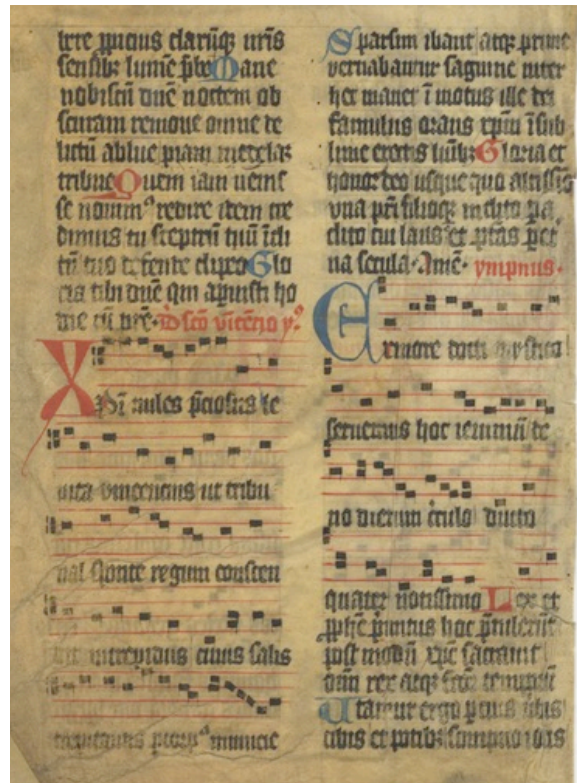 ppicius clarūq; uris
sensib; lumē pbe Mane
nobiscū dnē noctem ob
scuram remoue omne de
lictū ablue piam medelaꝫ
tribue Quem iam
se nouim⁹ redire item cre
dimus tu sceptrū tuū īcli
tū tuo defende clipeo Glo
ria tibi dnē qui apuisti ho
die cū pre· D scō vicēcio y⁹
Xpi miles p̄ciosus le
uita vincencius ut tribu
nal sponte regum conscen
dit intrepidus ciuis
municie
Sparsim ibant atq; prime
vernabantur saguine inter
hec manet ī motus ille dei
famulus orans xpm̄ ī sub
lime erectis Gloria et
honor deo usque quo altissīo
vna pri filioq; inclito pa
clito cui laus et ptās pet
na secula· Amē· ympnus·
Ex more docti mystico
seruemus hoc ieiuniū de
no dierum circulo ducto
quater notissimo Lex et
pphē primitus hoc ptulerūt
post modū xpē sacrauit
oīm rex atq; fctor temporū
Utamur ergo pcius ūbis
cibis et potib; sompno iocis